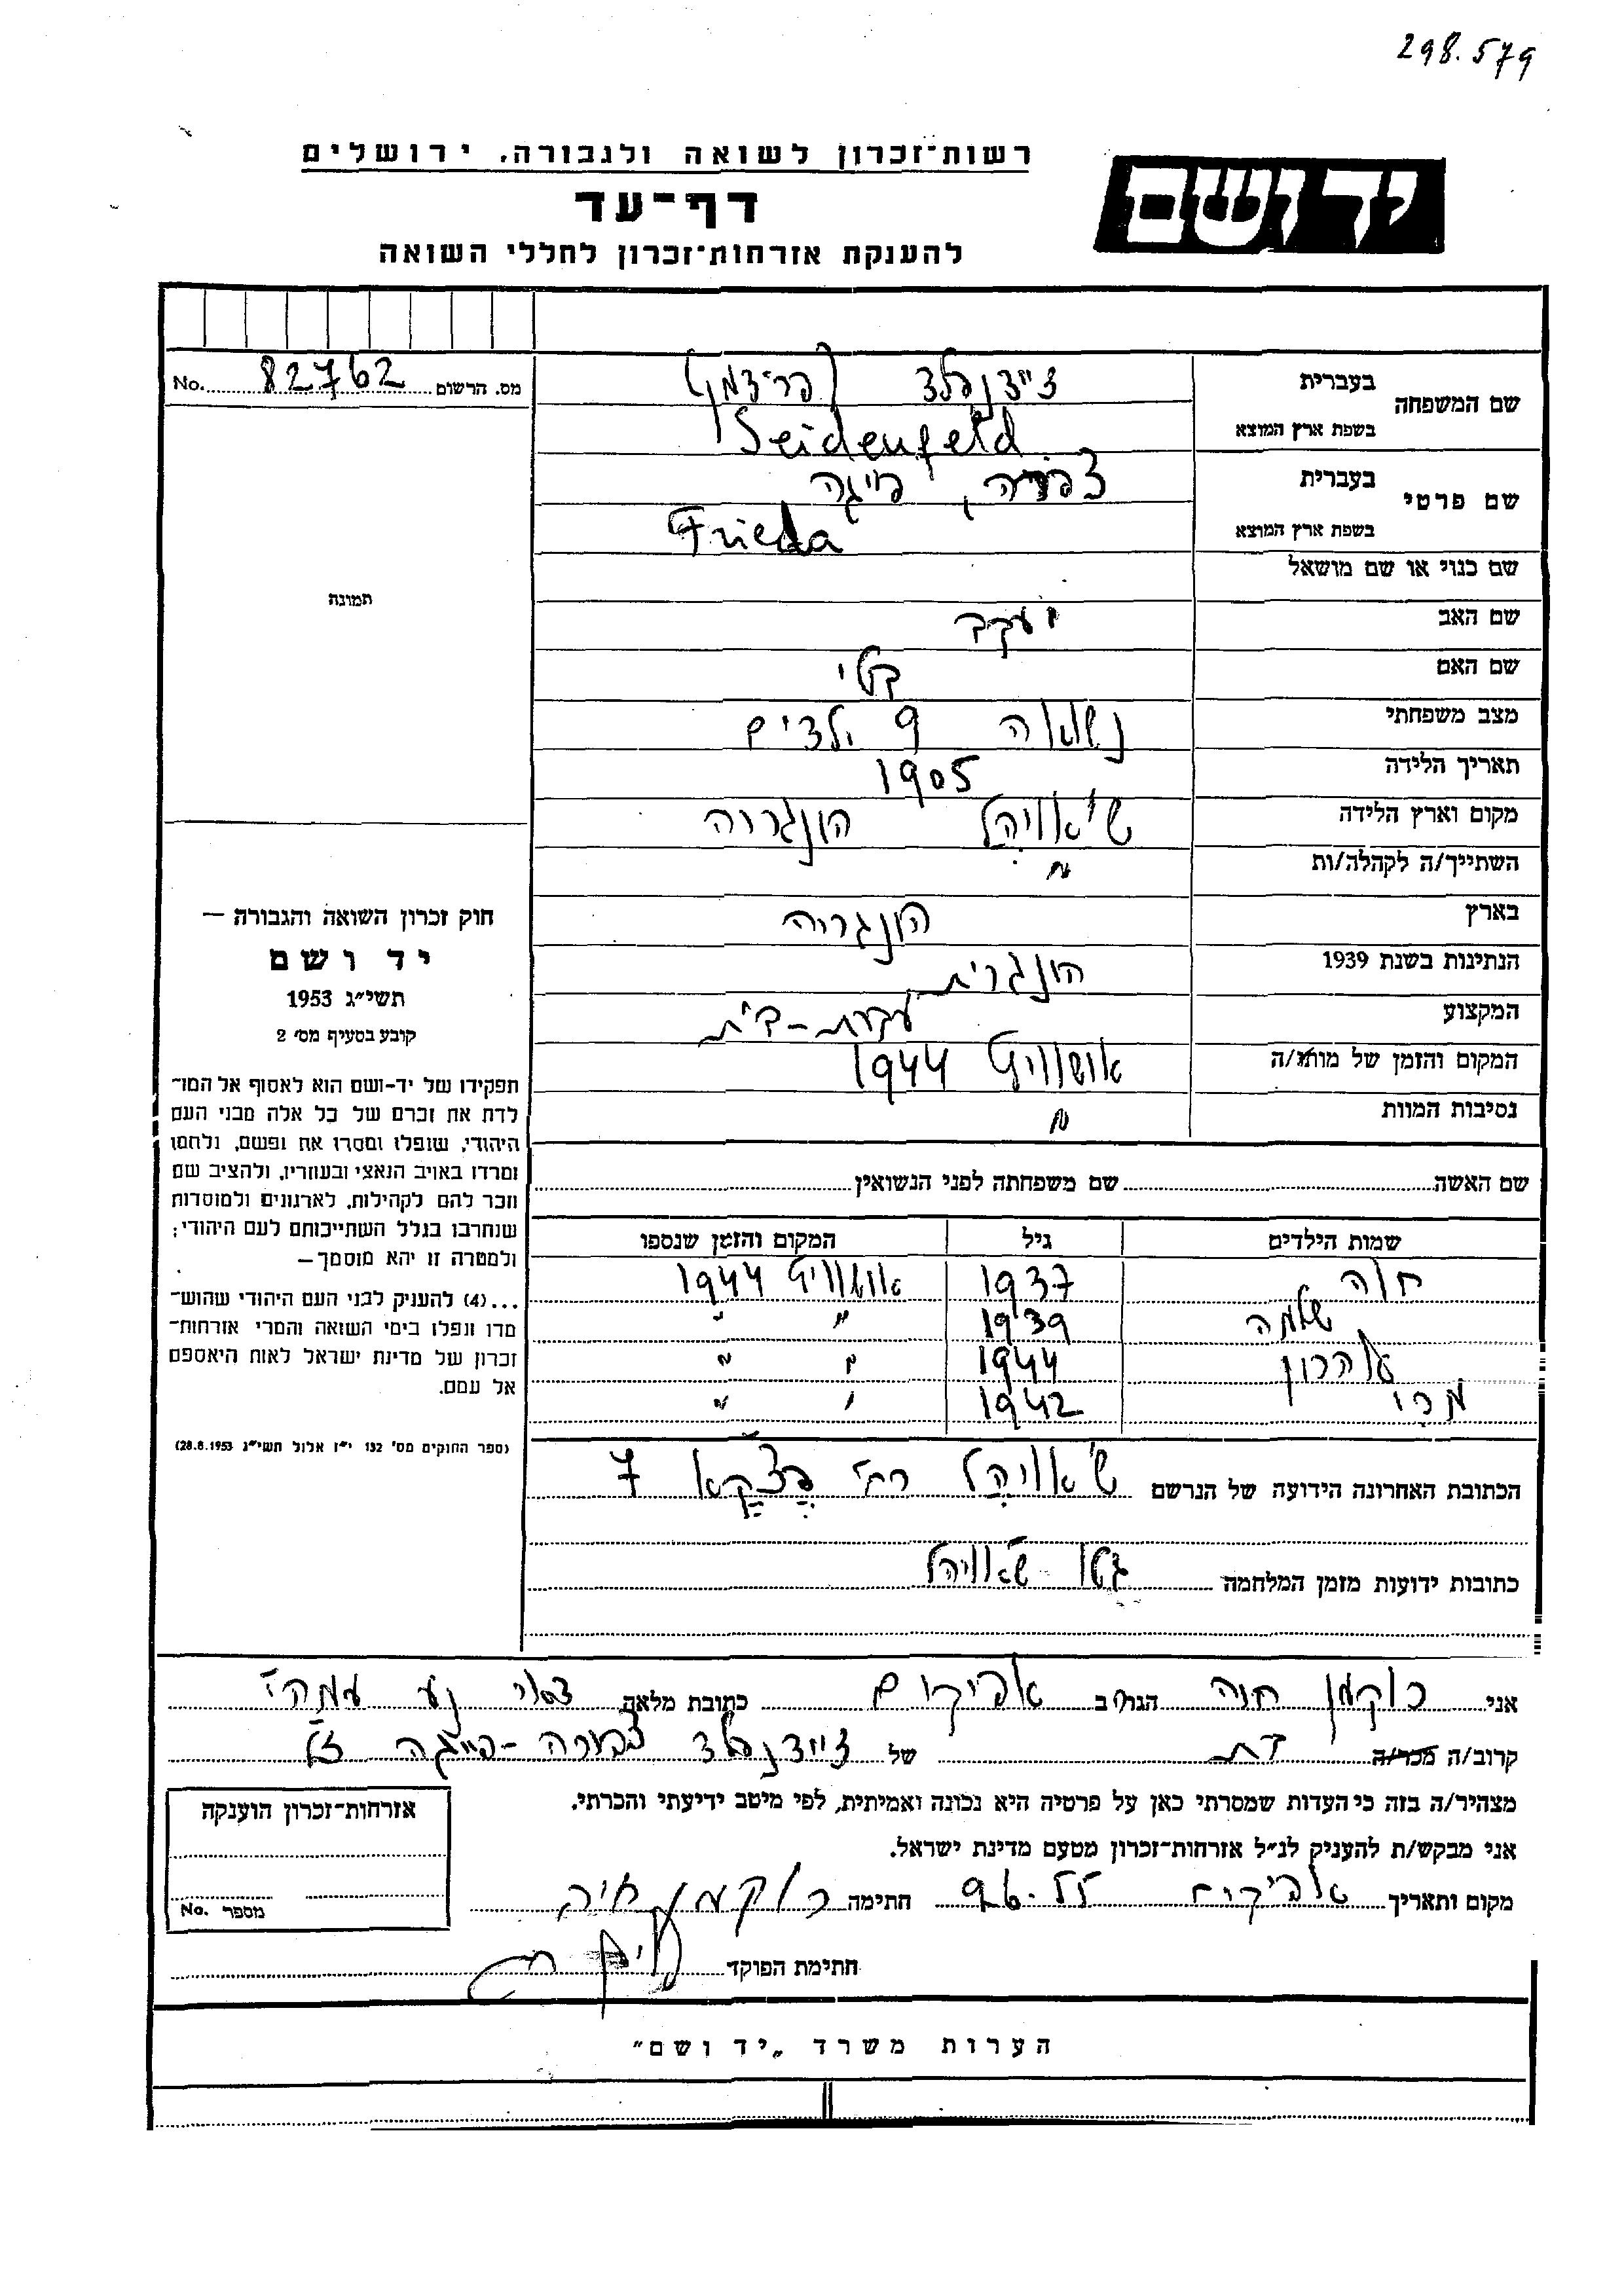 298.579
רשות־זכרון לשואה ולגבורה, ירושלים
יד ושם
דף־עד
להענקת אזרחות־זכרון לחללי השואה
מס. הרשום 82762 No.
שם המשפחה
בעברית זיידנפלד (פרידמן)
בשפת ארץ המוצא Seidenfeld
שם פרטי
בעברית צפורה, פייגה
בשפת ארץ המוצא Frieda
שם כנוי או שם מושאל
שם האב יעקב
שם האם קטי
מצב משפחתי נשואה 9 ילדים
תאריך הלידה 1905
מקום וארץ הלידה הונגריה
השתייך/ה לקהלה/ות "
בארץ הונגריה
הנתינות בשנת 1939 הונגרית
המקצוע עקרת-בית
המקום והזמן של מותו/ה אושוויץ 1944
נסיבות המוות "
תמונה
חוק זכרון השואה והגבורה —
יד ושם
תשי״ג 1953
קובע בסעיף מס׳ 2
תפקידו של יד-ושם הוא לאסוף אל המו־
לדת את זכרם של כל אלה מבני העם
היהודי, שנפלו ומסרו את נפשם, נלחמו
ומרדו באויב הנאצי ובעוזריו, ולהציב שם
וזכר להם לקהילות, לארגונים ולמוסדות
שנחרבו בגלל השתייכותם לעם היהודי;
ולמטרה זו יהא מוסמך —
...(4) להעניק לבני העם היהודי שהוש־
מדו ונפלו בימי השואה והמרי אזרחות־
זכרון של מדינת ישראל לאות היאספם
אל עמם.
(ספר החוקים מס׳ 132 י״ז אלול תשי״ג 28.8.1953)
שם האשה שם משפחתה לפני הנשואין
שמות הילדים גיל המקום והזמן שנספו
חוה 1937 אושוויץ 1944
שלמה 1939 " "
אהרון 1944 " "
מרי 1942 " "
הכתובת האחרונה הידועה של הנרשם רח׳ 7
כתובות ידועות מזמן המלחמה גטו
אני חנה הגר/ה ב אפיקים כתובת מלאה
קרוב/ה מכר/ה בת של זיידנפלד צפורה-פייגה ז״ל
מצהיר/ה בזה כי העדות שמסרתי כאן על פרטיה היא נכונה ואמיתית, לפי מיטב ידיעתי והכרתי.
אני מבקש/ת להעניק לנ״ל אזרחות־זכרון מטעם מדינת ישראל.
מקום ותאריך אפיקים חתימה
חתימת הפוקד
אזרחות־זכרון הוענקה
מספר No.
הערות משרד „יד ושם"